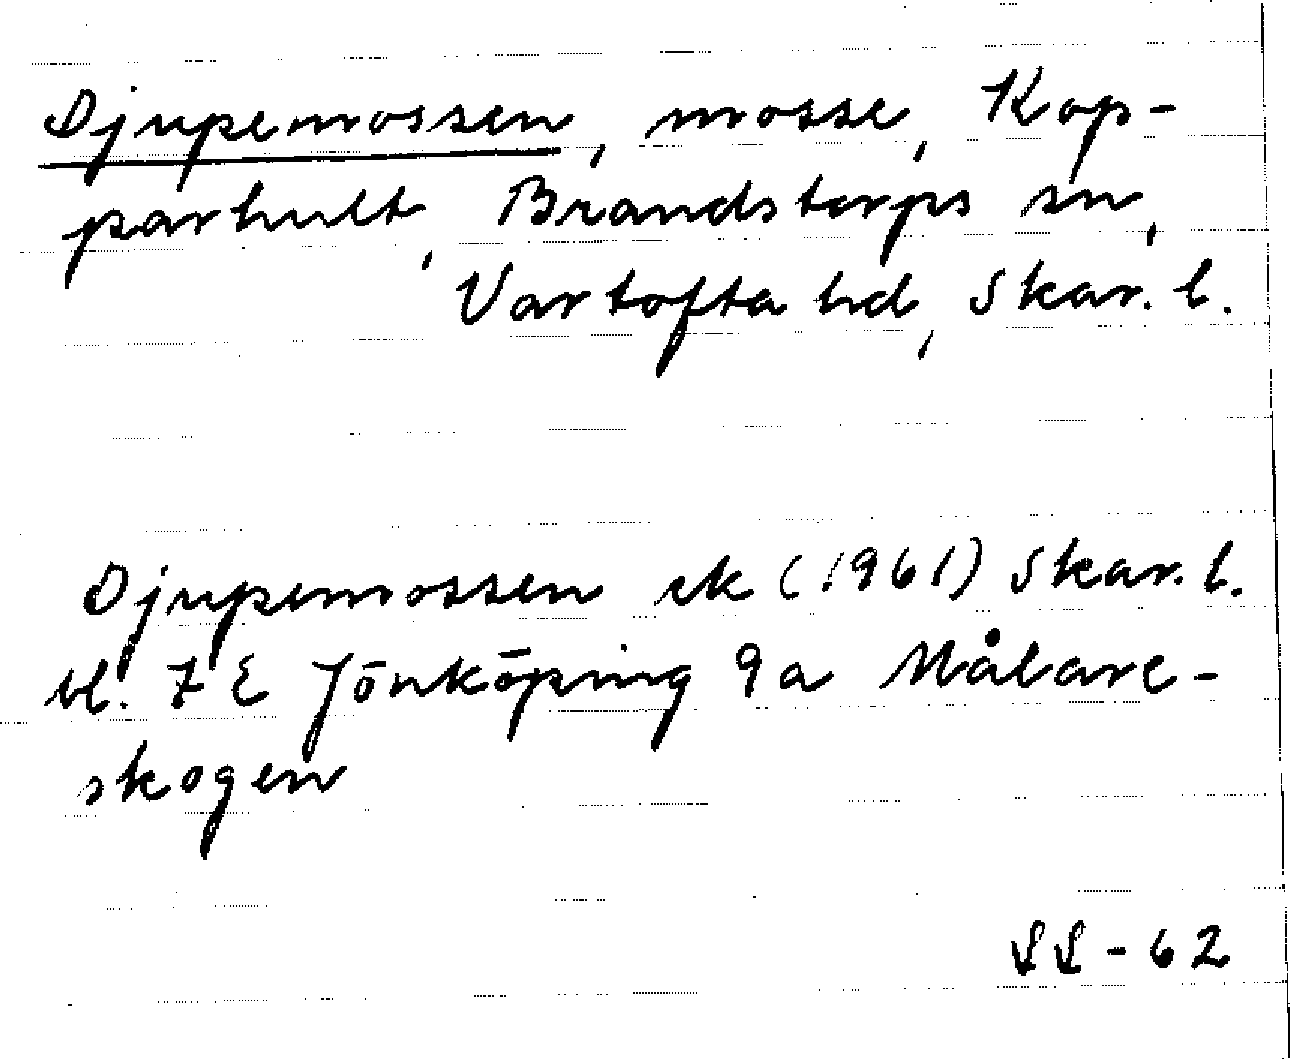 Djupemossen, mosse, Kop-
parhult, Brandstorps sn,
Vartofta hd, Skar. l.
Djupemossen ek (1961) Skar. l.
bl. 7 E Jönköping 9a Målare-
skogen
SS-62